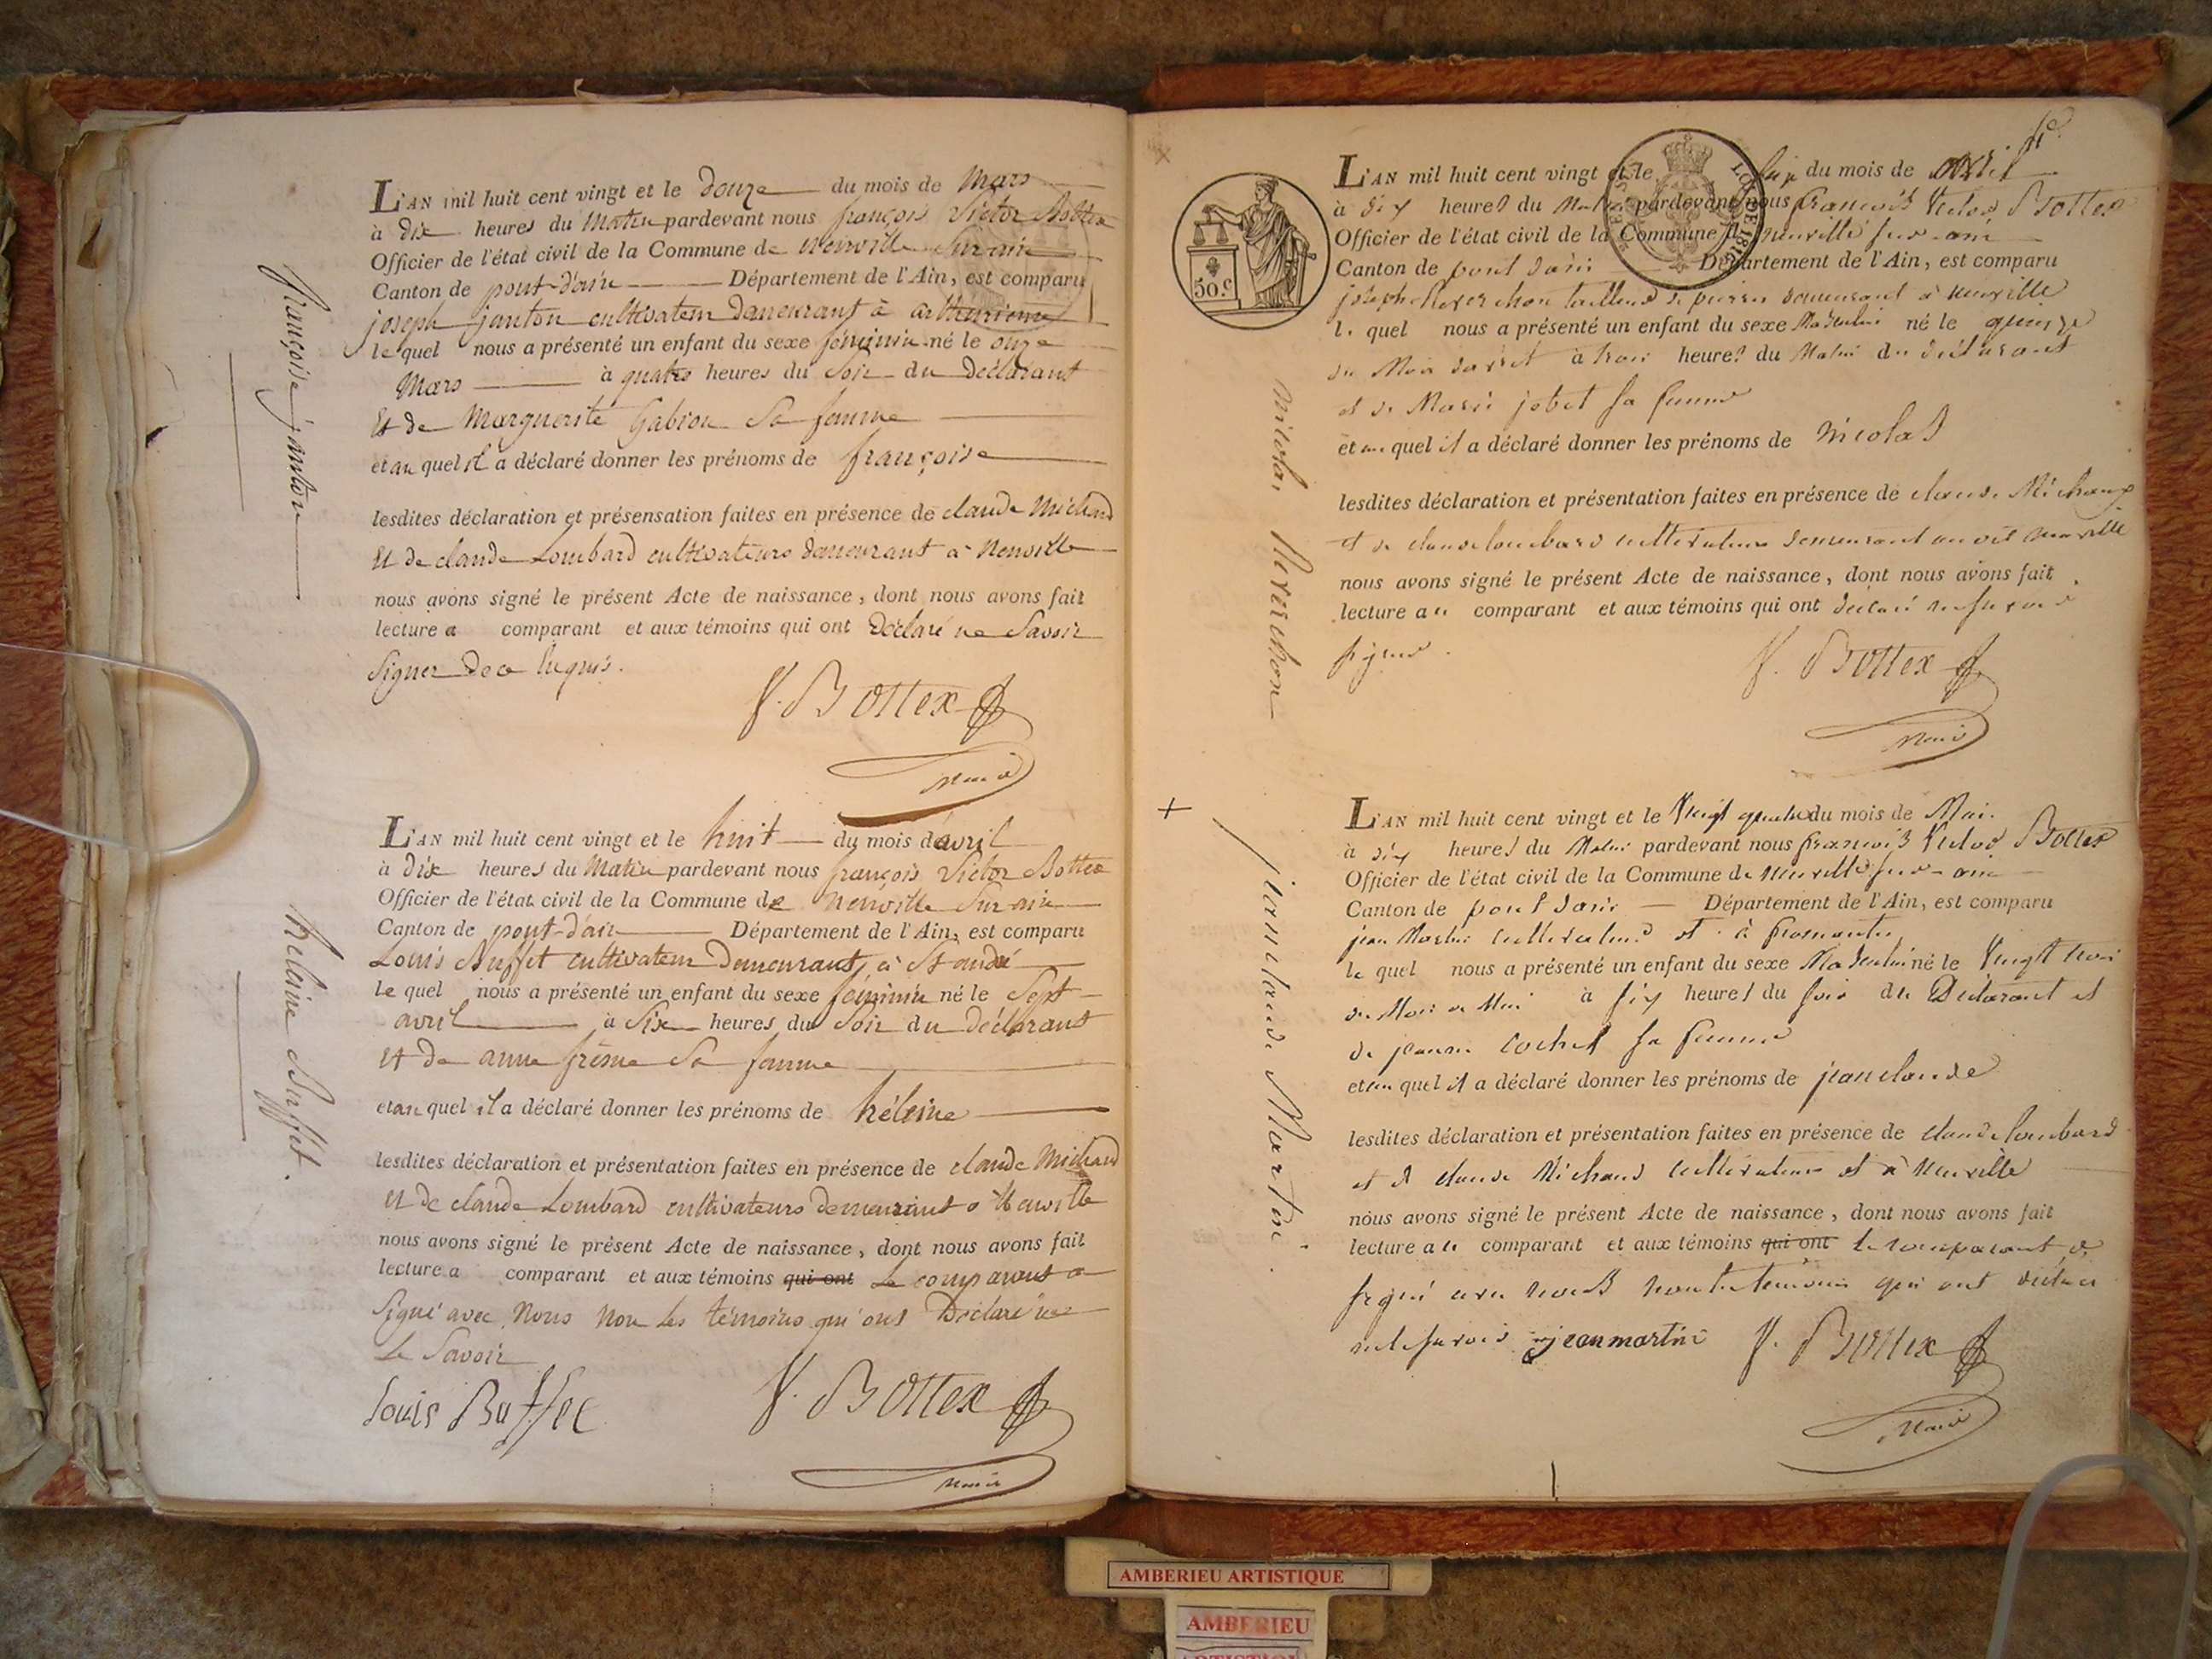 françoise janton
L'AN mil huit cent vingt et le douze du mois de Mars
à dix heures du Matin pardevant nous françois Victor Bottex
Officier de l'état civil de la Commune de neuville Sur ain
Canton de pont-d'ain Département de l'Ain, est comparu
joseph janton cultivateur demeurant à
le quel nous a présenté un enfant du sexe féminin né le onze
Mars à quatre heures du Soir du Déclarant
Et de Marguerite Gabion Sa femme
et au quel il a déclaré donner les prénoms de françoise
lesdites déclaration et présensation faites en présence de claude Michaud
Et de claude Lombard cultivateurs demeurant à Neuville
nous avons signé le présent Acte de naissance, dont nous avons fait
lecture a comparant et aux témoins qui ont Déclaré ne Savoir
Signer de ce Enquis.
V. Bottex
Maire
helaine Buffet.
L'AN mil huit cent vingt et le huit du mois d'avril
à dix heures du Matin pardevant nous françois Victor Bottex
Officier de l'état civil de la Commune de Neuville Sur ain
Canton de pont-d'ain Département de l'Ain, est comparu
Louis Buffet cultivateur Demeurant à St andré
le quel nous a présenté un enfant du sexe féminin né le Sept
avril à Six heures du Soir du déclarant
Et de anne frême Sa femme
et au quel il a déclaré donner les prénoms de héleine
lesdites déclaration et présentation faites en présence de claude Michaud
Et de claude Lombard cultivateurs demeurant a Neuville
nous avons signé le présent Acte de naissance, dont nous avons fait
lecture a comparant et aux témoins qui ont Le comparant a
Signé avec Nous Non Les témoins qui ont Déclaré ne
Le Savoir
louis Buffet V. Bottex
Maire
50.c
nicolas Reverchon
L'AN mil huit cent vingt et le du mois de avril
à dix heures du Matin pardevant nous françois Victor Bottex
Officier de l'état civil de la Commune d neuville sur ain
Canton de pont dain Département de l'Ain, est comparu
joseph Reverchon tailleur de pierres demeurant à neuville
le quel nous a présenté un enfant du sexe Masculin né le quinze
du Mois davril à trois heures du Matin du déclarant
et de Marie jobet sa femme
et au quel il a déclaré donner les prénoms de nicolas
lesdites déclaration et présentation faites en présence de claude Michaud
et de claude lombard cultivateurs demeurant au dit neuville
nous avons signé le présent Acte de naissance, dont nous avons fait
lecture au comparant et aux témoins qui ont déclaré ne savoir
signer.
V. Bottex
Maire
jean claude Martin.
L'AN mil huit cent vingt et le Vingt quatre du mois de Mai
à dix heures du Matin pardevant nous françois Victor Bottex
Officier de l'état civil de la Commune de neuville sur ain
Canton de pont dain Département de l'Ain, est comparu
jean Martin cultivateur dt à fromente
le quel nous a présenté un enfant du sexe Masculin né le Vingt trois
du Mois de Mai à six heures du soir du Déclarant et
de jeanne cochet sa femme
et au quel il a déclaré donner les prénoms de jean claude
lesdites déclaration et présentation faites en présence de claude lombard
et d claude Michaud cultivateurs dt à neuville
nous avons signé le présent Acte de naissance, dont nous avons fait
lecture au comparant et aux témoins qui ont le comparant a
signé avec nous non les témoins qui ont déclaré
ne le savoir jean martin V. Bottex
Maire
AMBERIEU ARTISTIQUE
AMBERIEU
ARTISTIQUE